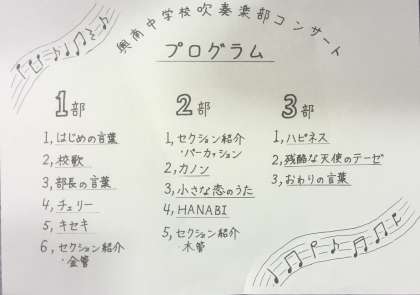 興南中学校吹奏楽部コンサート
プログラム
1部
1, はじめの言葉
2, 校歌
3, 部長の言葉
4, チェリー
5, キセキ
6, セクション紹介
・金管
2部
1, セクション紹介
・パーカッション
2, カノン
3, 小さな恋のうた
4, HANABI
5, セクション紹介
・木管
3部
1, ハピネス
2, 残酷な天使のテーゼ
3, おわりの言葉